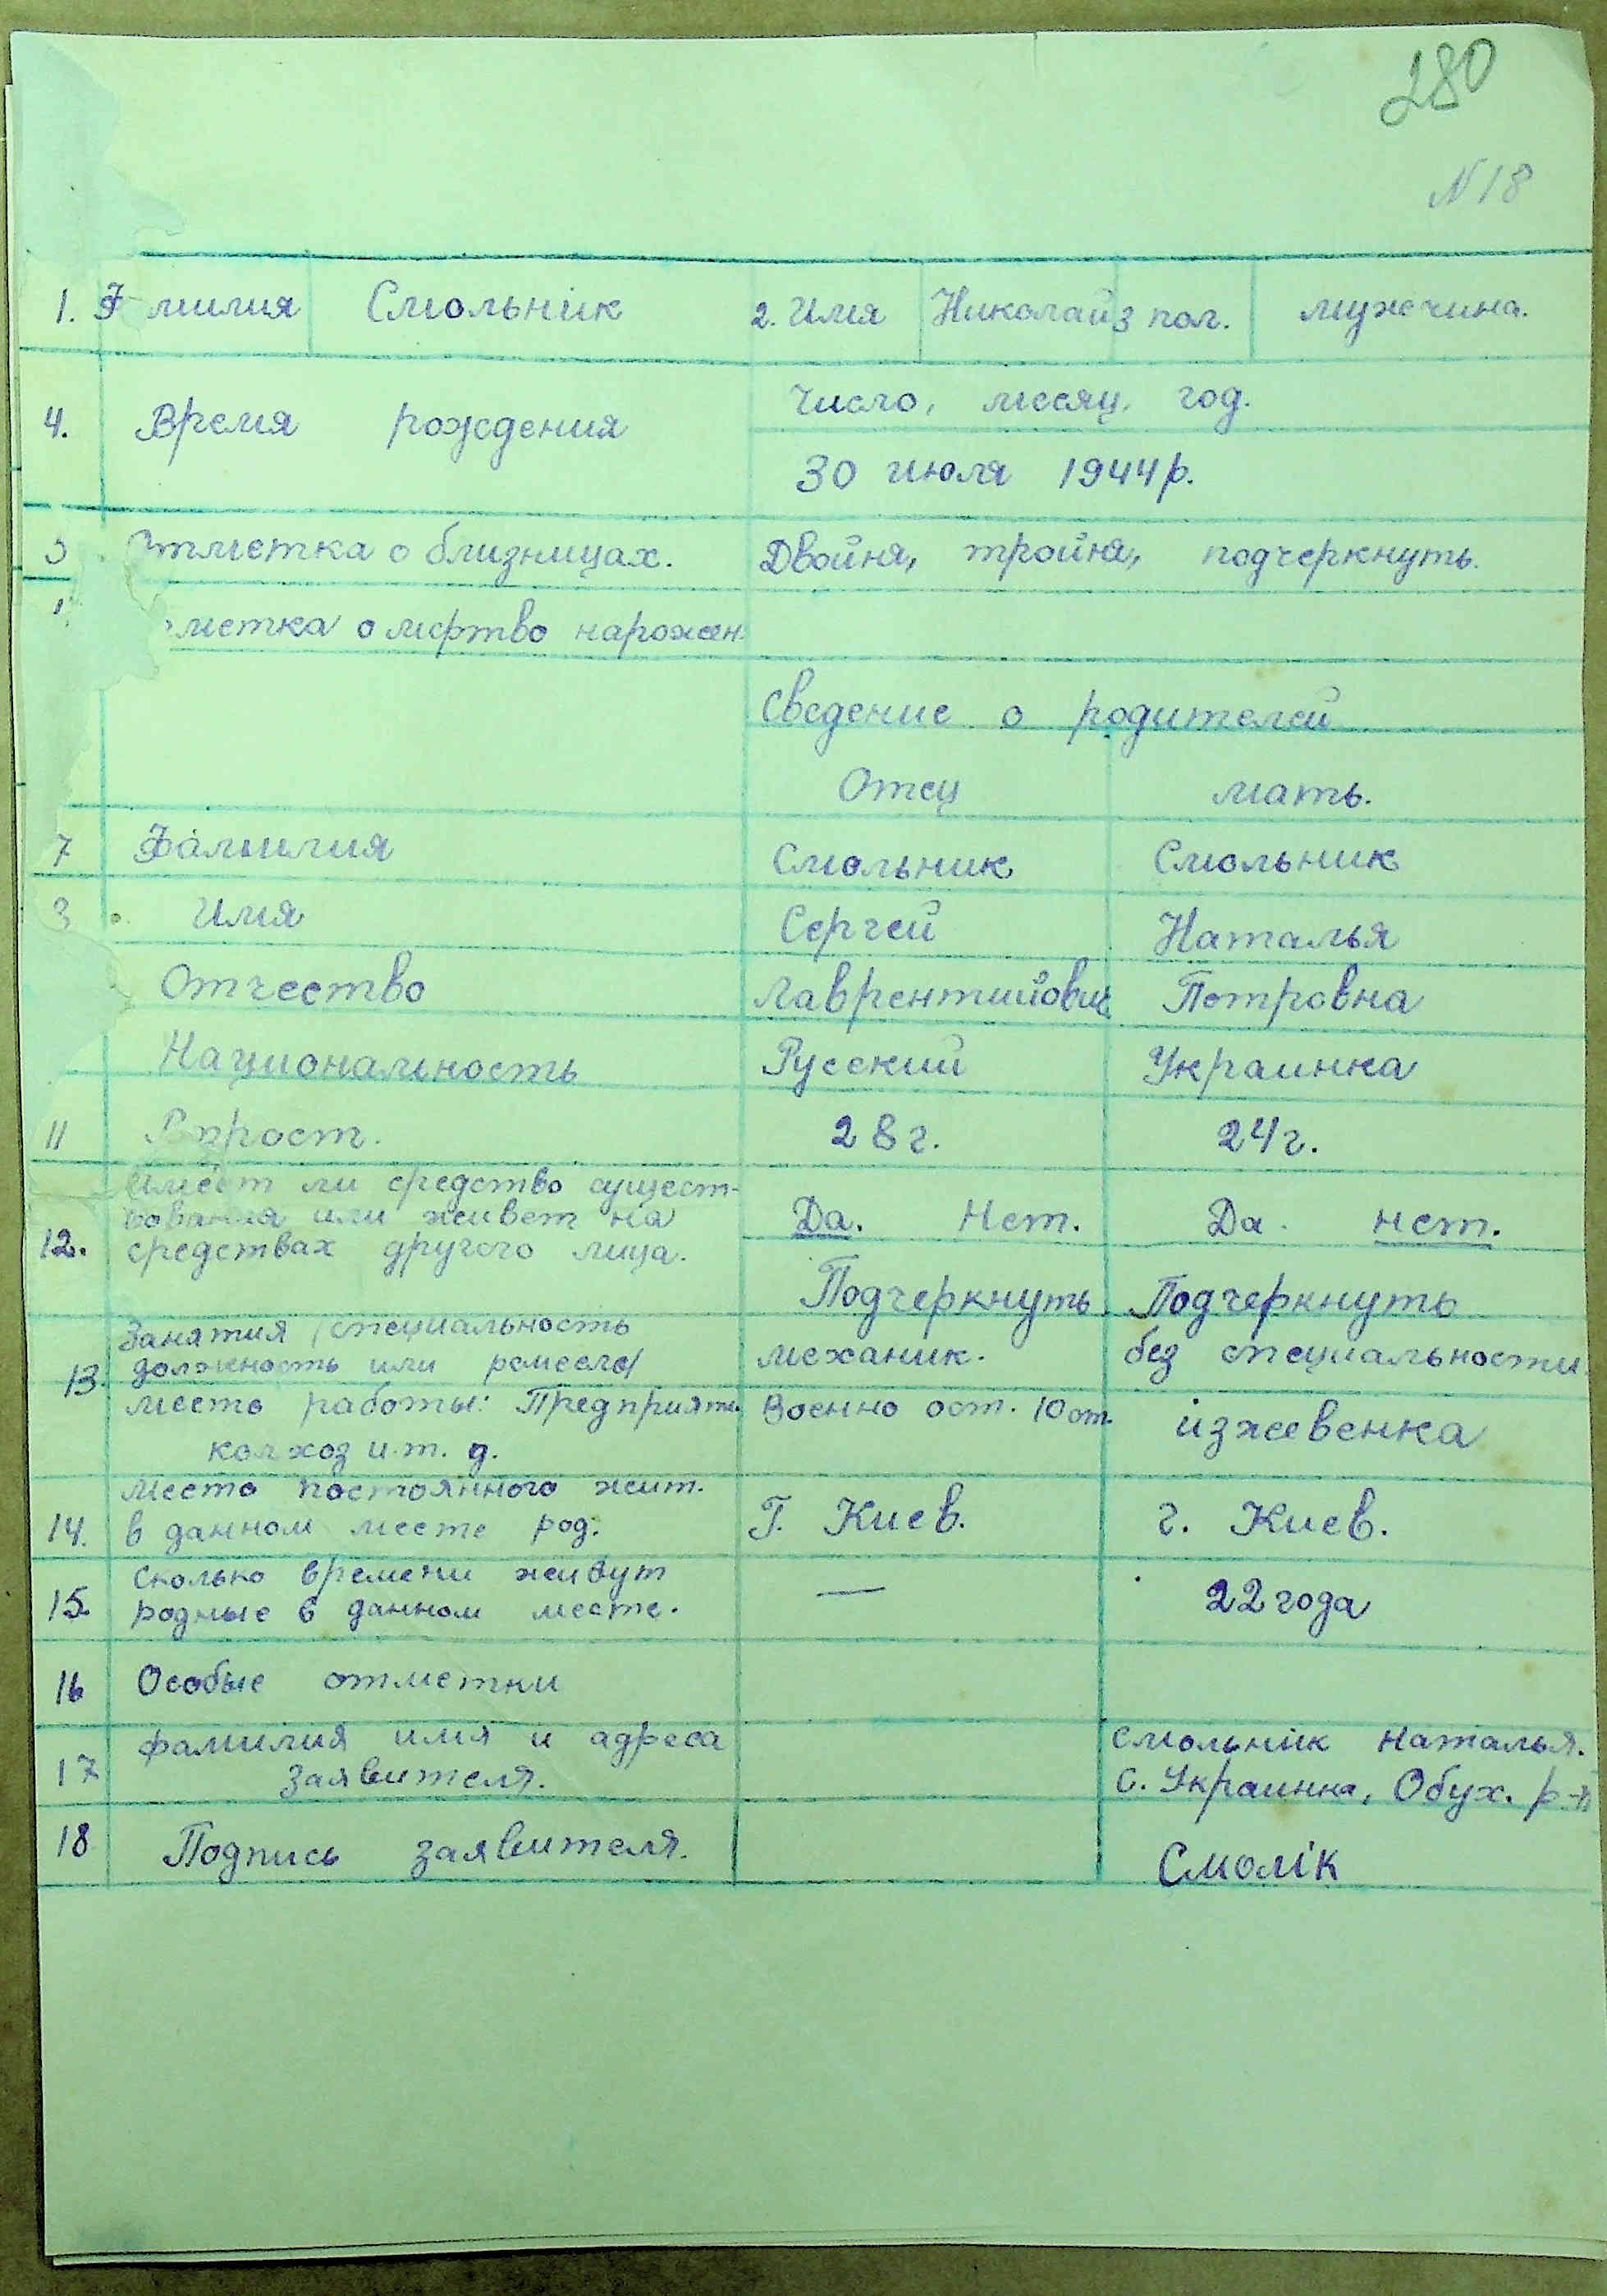 280
N 18
1. Ф милия Смольнік 2. Имя Николай 3 пол. мужчина.
4. Время рождения Число, месяц, год.
30 июля 1944р.
Отметка о близницах. Двойня, тройня, подчеркнуть.
метка о мертво нарожен.
Сведение о родителей
Отец мать.
7 Фамилия Смольник Смольник
Имя Сергей Наталья
Отчество Лаврентийович Петровна
Национальность Русский Украинка
11 28г. 24г.
Имеет ли средство сущест-
вования или живет на Да. Нет. Да. нет.
12. средствах другого лица.
Подчеркнуть Подчеркнуть
Занятия (специальность
13. должность или ремесло/ механик. без специальности
место работы: Предприяти Военно ост. 10 от. ізжевенка
колхоз и.т.д.
Место постоянного жит.
14. в данном месте род. Г. Киев. г. Киев.
Сколько времени живут
15. родные в данном месте. — 22 года
16 Особые отметки
фамилия имя и адреса Смольнік Наталья.
17 заявителя. С. Украинка, Обух. р-н
18 Подпись заявителя. Смолік